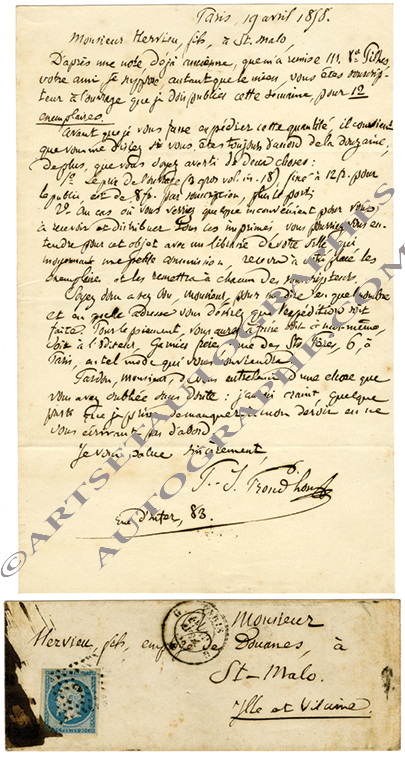 Paris, 19 avril 1858.
Monsieur Hervieu, fils, à St. Malo,
D'après une note déjà ancienne, que m'a remise M.
votre ami je suppose, autant que le mien, vous êtes souscrip-
teur à l'ouvrage que je dois publier cette semaine, pour 12
exemplaires.
Avant que je vous fasse expédier cette quantité, il convient
que vous me disiez si vous êtes toujours d'avis de la douzaine,
de plus, que vous soyez averti de deux choses:
1º Le prix de l'ouvrage (3 gros vol. in-18), fixé à 12 f. pour
le public est de 8 f. par souscription, plus le port;
2º Au cas où vous verriez quelque inconvénient pour vous
à recevoir et distribuer tous ces imprimés vous pourriez vous en-
tendre pour cet objet avec un libraire de votre ville, qui
moyennant une petite commission, recevra à votre place les
exemplaires et les remettra à chacun des souscripteurs.
Soyez donc assez bon, monsieur, pour me dire en quel nombre
et à quelle adresse vous désirez que l'expédition soit
faite. Pour le paiement, vous aurez à faire soit à moi-même,
soit à l'éditeur, Garnier frères, rue des Sts Pères, 6, à
Paris, au tel mode qui vous conviendra.
Pardon, monsieur, de vous entretenir d'une chose que
vous avez oubliée sans doute: j'aurais craint, quelque
parti que je prisse, de manquer à mon devoir en ne
vous écrivant pas d'abord.
Je vous salue sincèrement,
P.-J. Proudhon
rue d'Enfer, 83.
©ARTSETAUTOGRAPHES
AUTOGRAPHE.COM
PARIS
Monsieur
Hervieu, fils, emp. de Douanes, à
St-Malo.
Ille et Vilaine.